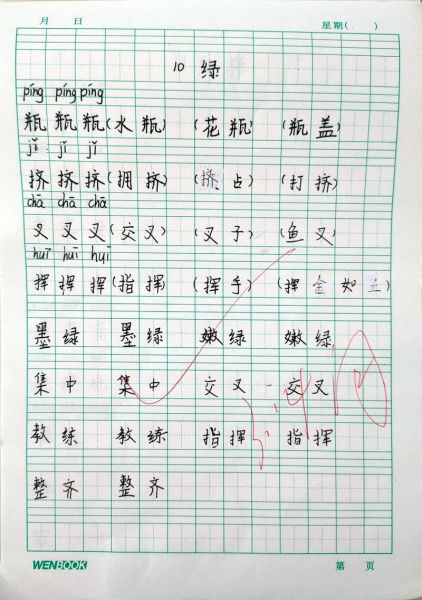 月 日 星期( )
10 绿
píng píng píng
瓶 瓶 瓶(水 瓶) (花 瓶) (瓶 盖)
jǐ jǐ jǐ
挤 挤 挤(拥 挤) (挤 占) (打 挤)
chā chā chā
叉 叉 叉(交 叉) (叉 子) (鱼 叉)
huī huī huī
挥 挥 挥(指 挥) (挥 手) (挥 金 如 土)
墨 绿 墨 绿 嫩 绿 嫩 绿
集 中 集 中 交 叉 交 叉
教 练 教 练 指 挥 指 挥
整 齐 整 齐
WENBOOK 第 页